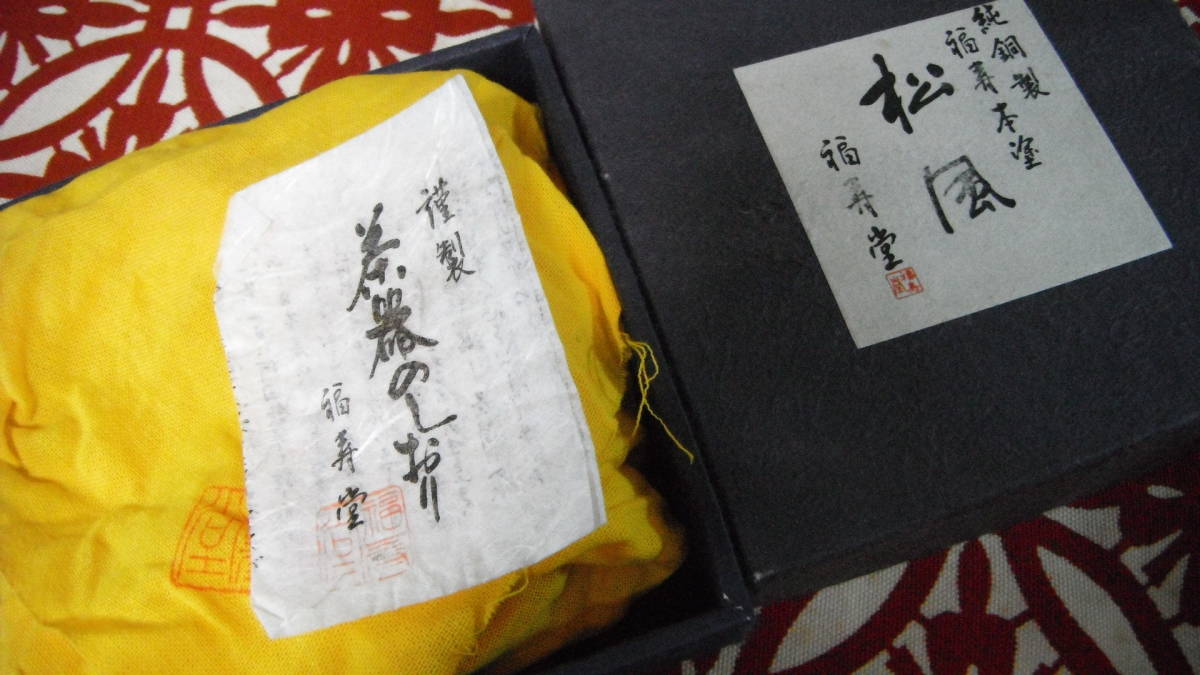 純銅製
福寿本塗
松風
福寿堂
謹製
茶器のしおり
福寿堂